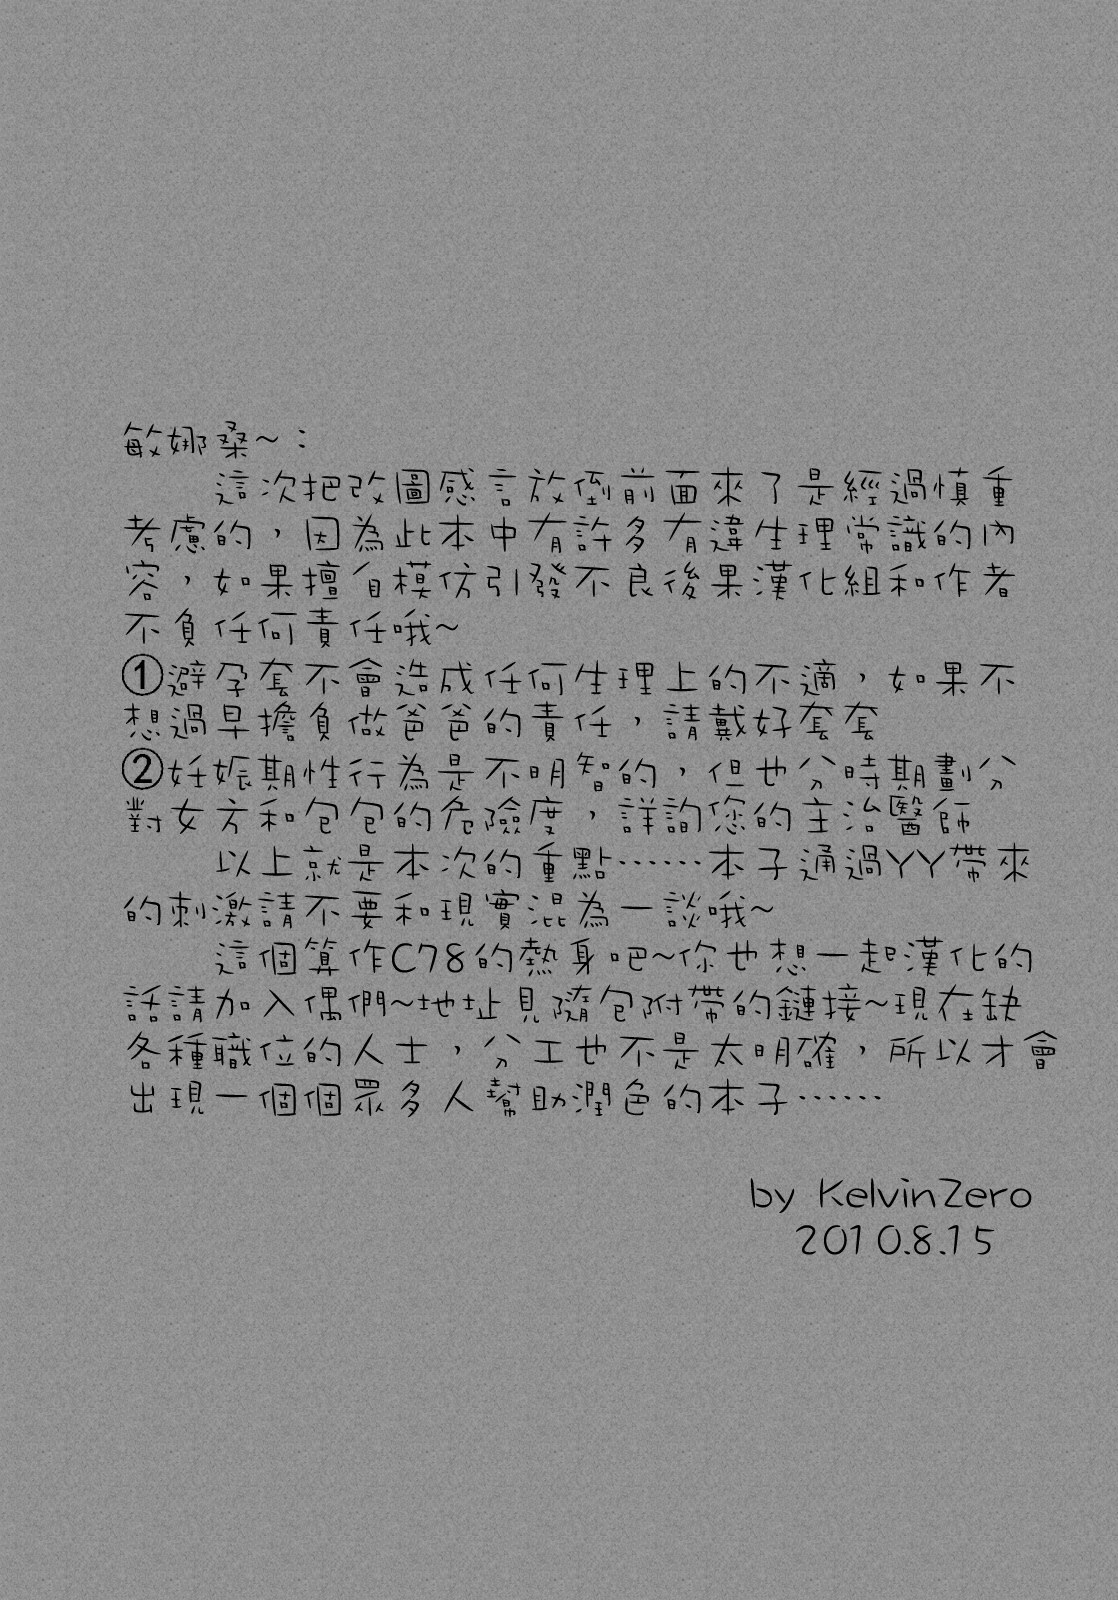 敏娜桑~：
這次把改圖感言放倒前面來了是經過慎重
考慮的，因為此本中有許多有違生理常識的內
容，如果擅自模仿引發不良後果漢化組和作者
不負任何責任哦~
①避孕套不會造成任何生理上的不適，如果不
想過早擔負做爸爸的責任，請戴好套套
②妊娠期性行為是不明智的，但也分時期劃分
對女方和包包的危險度，詳詢您的主治醫師
以上就是本次的重點⋯⋯本子通過YY帶來
的刺激請不要和現實混為一談哦~
這個算作C78的熱身吧~你也想一起漢化的
話請加入偶們~地址見隨包附帶的鏈接~現在缺
各種職位的人士，分工也不是太明確，所以才會
出現一個個眾多人幫助潤色的本子⋯⋯
by KelvinZero
2010.8.15